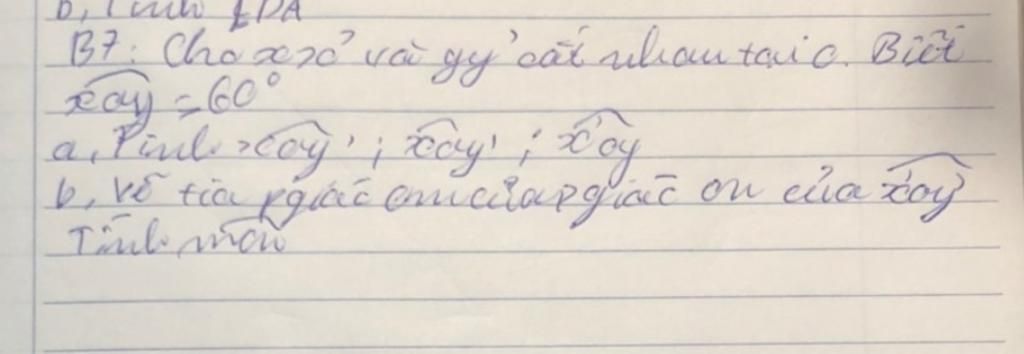 b, Tính EDA
B7: Cho xx' và yy' cắt nhau tại O. Biết
xOy = 60°
a, Tính xOy'; x'Oy'; x'Oy
b, vẽ tia pgiác Om của pgiác On của x'Oy'
Tính mOn